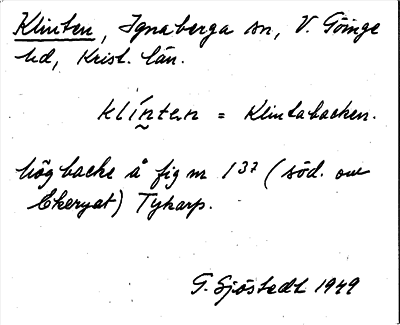 Klinten, Ignaberga sn, V. Göinge
hd, Krist. län.
klínten = Klintabacken.
hög backe å fig m 137 (söd. om
Ekeryet) Tykarp.
G. Sjöstedt 1949